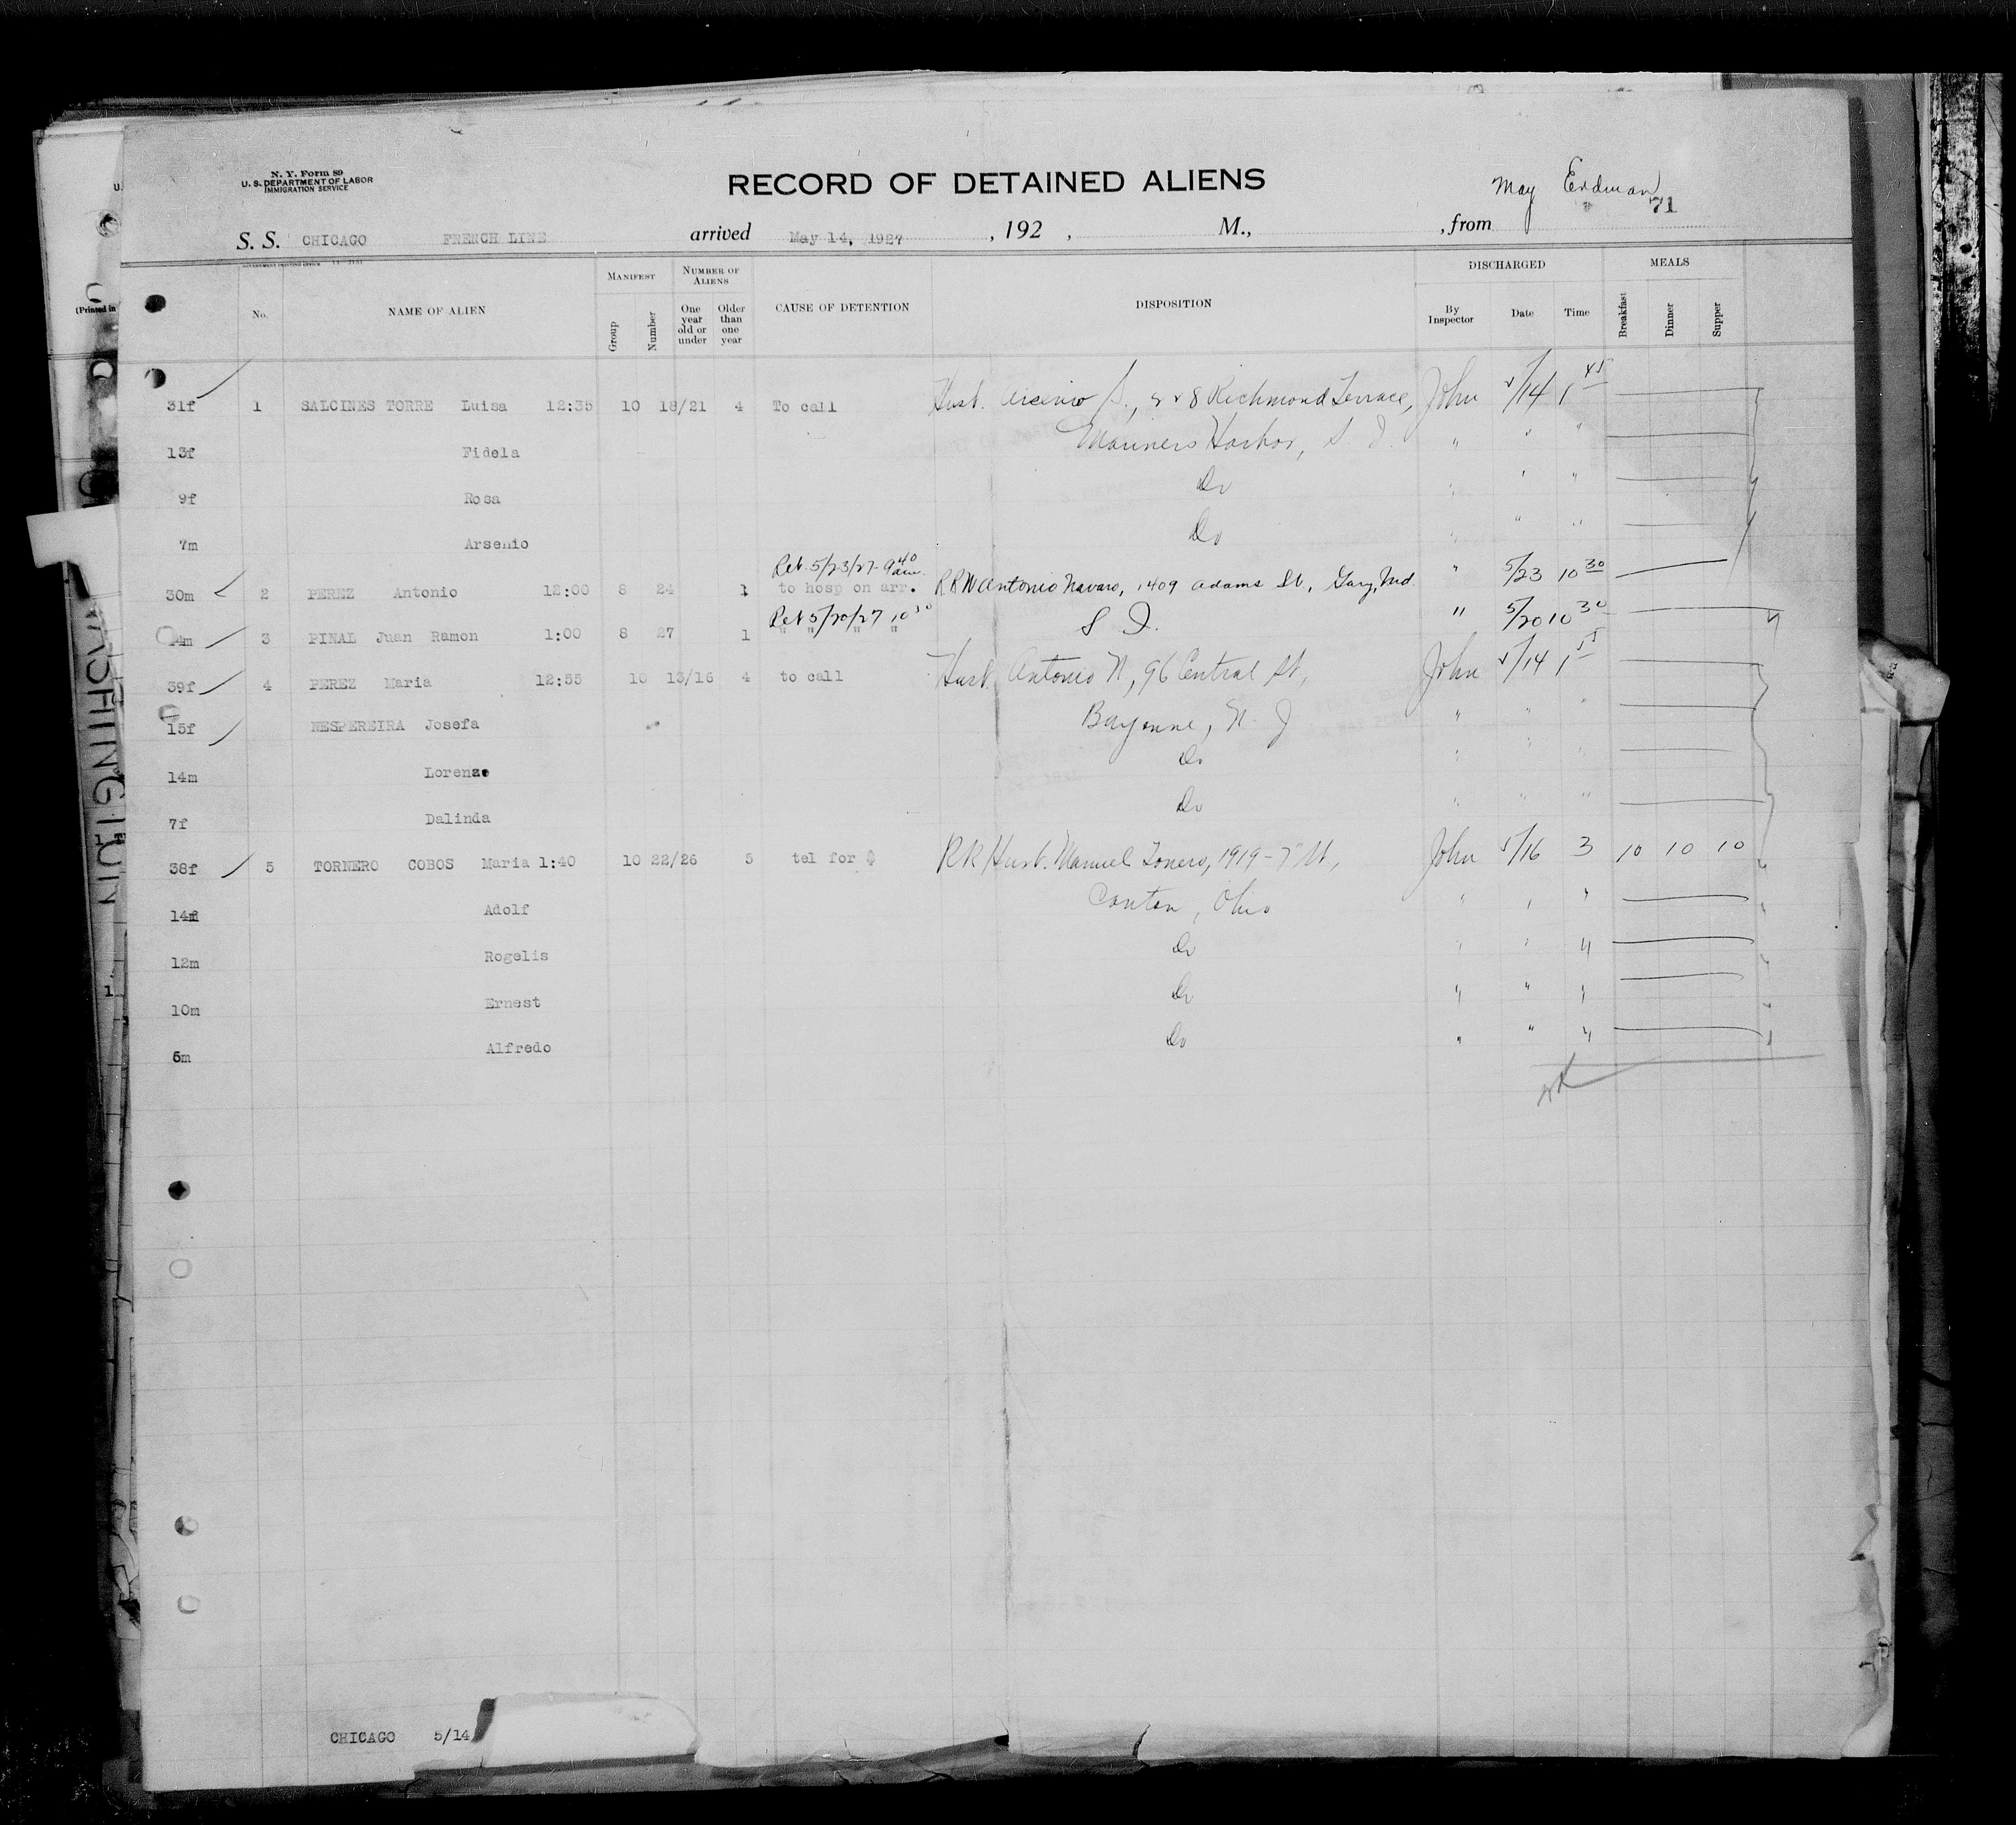 N. Y. Form 89
U. S. DEPARTMENT OF LABOR
IMMIGRATION SERVICE
RECORD OF DETAINED ALIENS
May Erdman
71
S. S. CHICAGO FRENCH LINE arrived May 14, 1927, 192 , M., , from
No. NAME OF ALIEN MANIFEST Group Number NUMBER OF ALIENS One year old or under Older than one year CAUSE OF DETENTION DISPOSITION DISCHARGED By Inspector Date Time MEALS Breakfast Dinner Supper
31f 1 SALCINES TORRE Luisa 12:35 10 18/21 4 To call Husb. S., Richmond Terrace, John 5/14 1 45
13f Fidela Mariners Harbor, S. I. " " "
9f Rosa Do " " "
7m Arsenio Do " " "
Ret 5/23/27-9 40 am
30m 2 PEREZ Antonio 12:00 8 24 1 to hosp on arr. RR Antonio Navaro, 1409 Adams St, Gary, Ind " 5/23 10 30
Ret 5/20/27 10 30
3 PINAL Juan Ramon 1:00 8 27 1 " " " " S I. " 5/20 10 30
39f 4 PEREZ Maria 12:55 10 13/16 4 to call Husb. Antonio N, 96 Central St, John 5/14 1
15f NESPEREIRA Josefa Bayonne, N. J " " "
14m Lorenzo Do " " "
7f Dalinda Do " " "
38f 5 TORNERO COBOS Maria 1:40 10 22/26 5 tel for $ RR Husb. Manuel 1919-7" St, John 5/16 3 10 10 10
14m Adolf Canton, Ohio " " "
12m Rogelis Do " " "
10m Ernest Do " " "
6m Alfredo Do " " "
CHICAGO 5/14